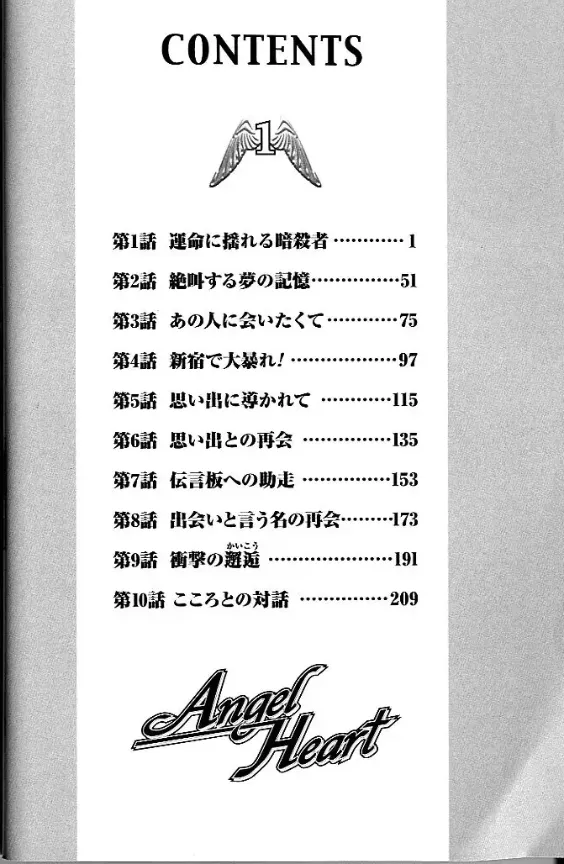 CONTENTS
1
第1話 運命に揺れる暗殺者…………1
第2話 絶叫する夢の記憶……………51
第3話 あの人に会いたくて…………75
第4話 新宿で大暴れ!………………97
第5話 思い出に導かれて …………115
第6話 思い出との再会 ……………135
第7話 伝言板への助走 ……………153
第8話 出会いと言う名の再会………173
かいこう
第9話 衝撃の邂逅 …………………191
第10話 こころとの対話 ……………209
Angel
Heart